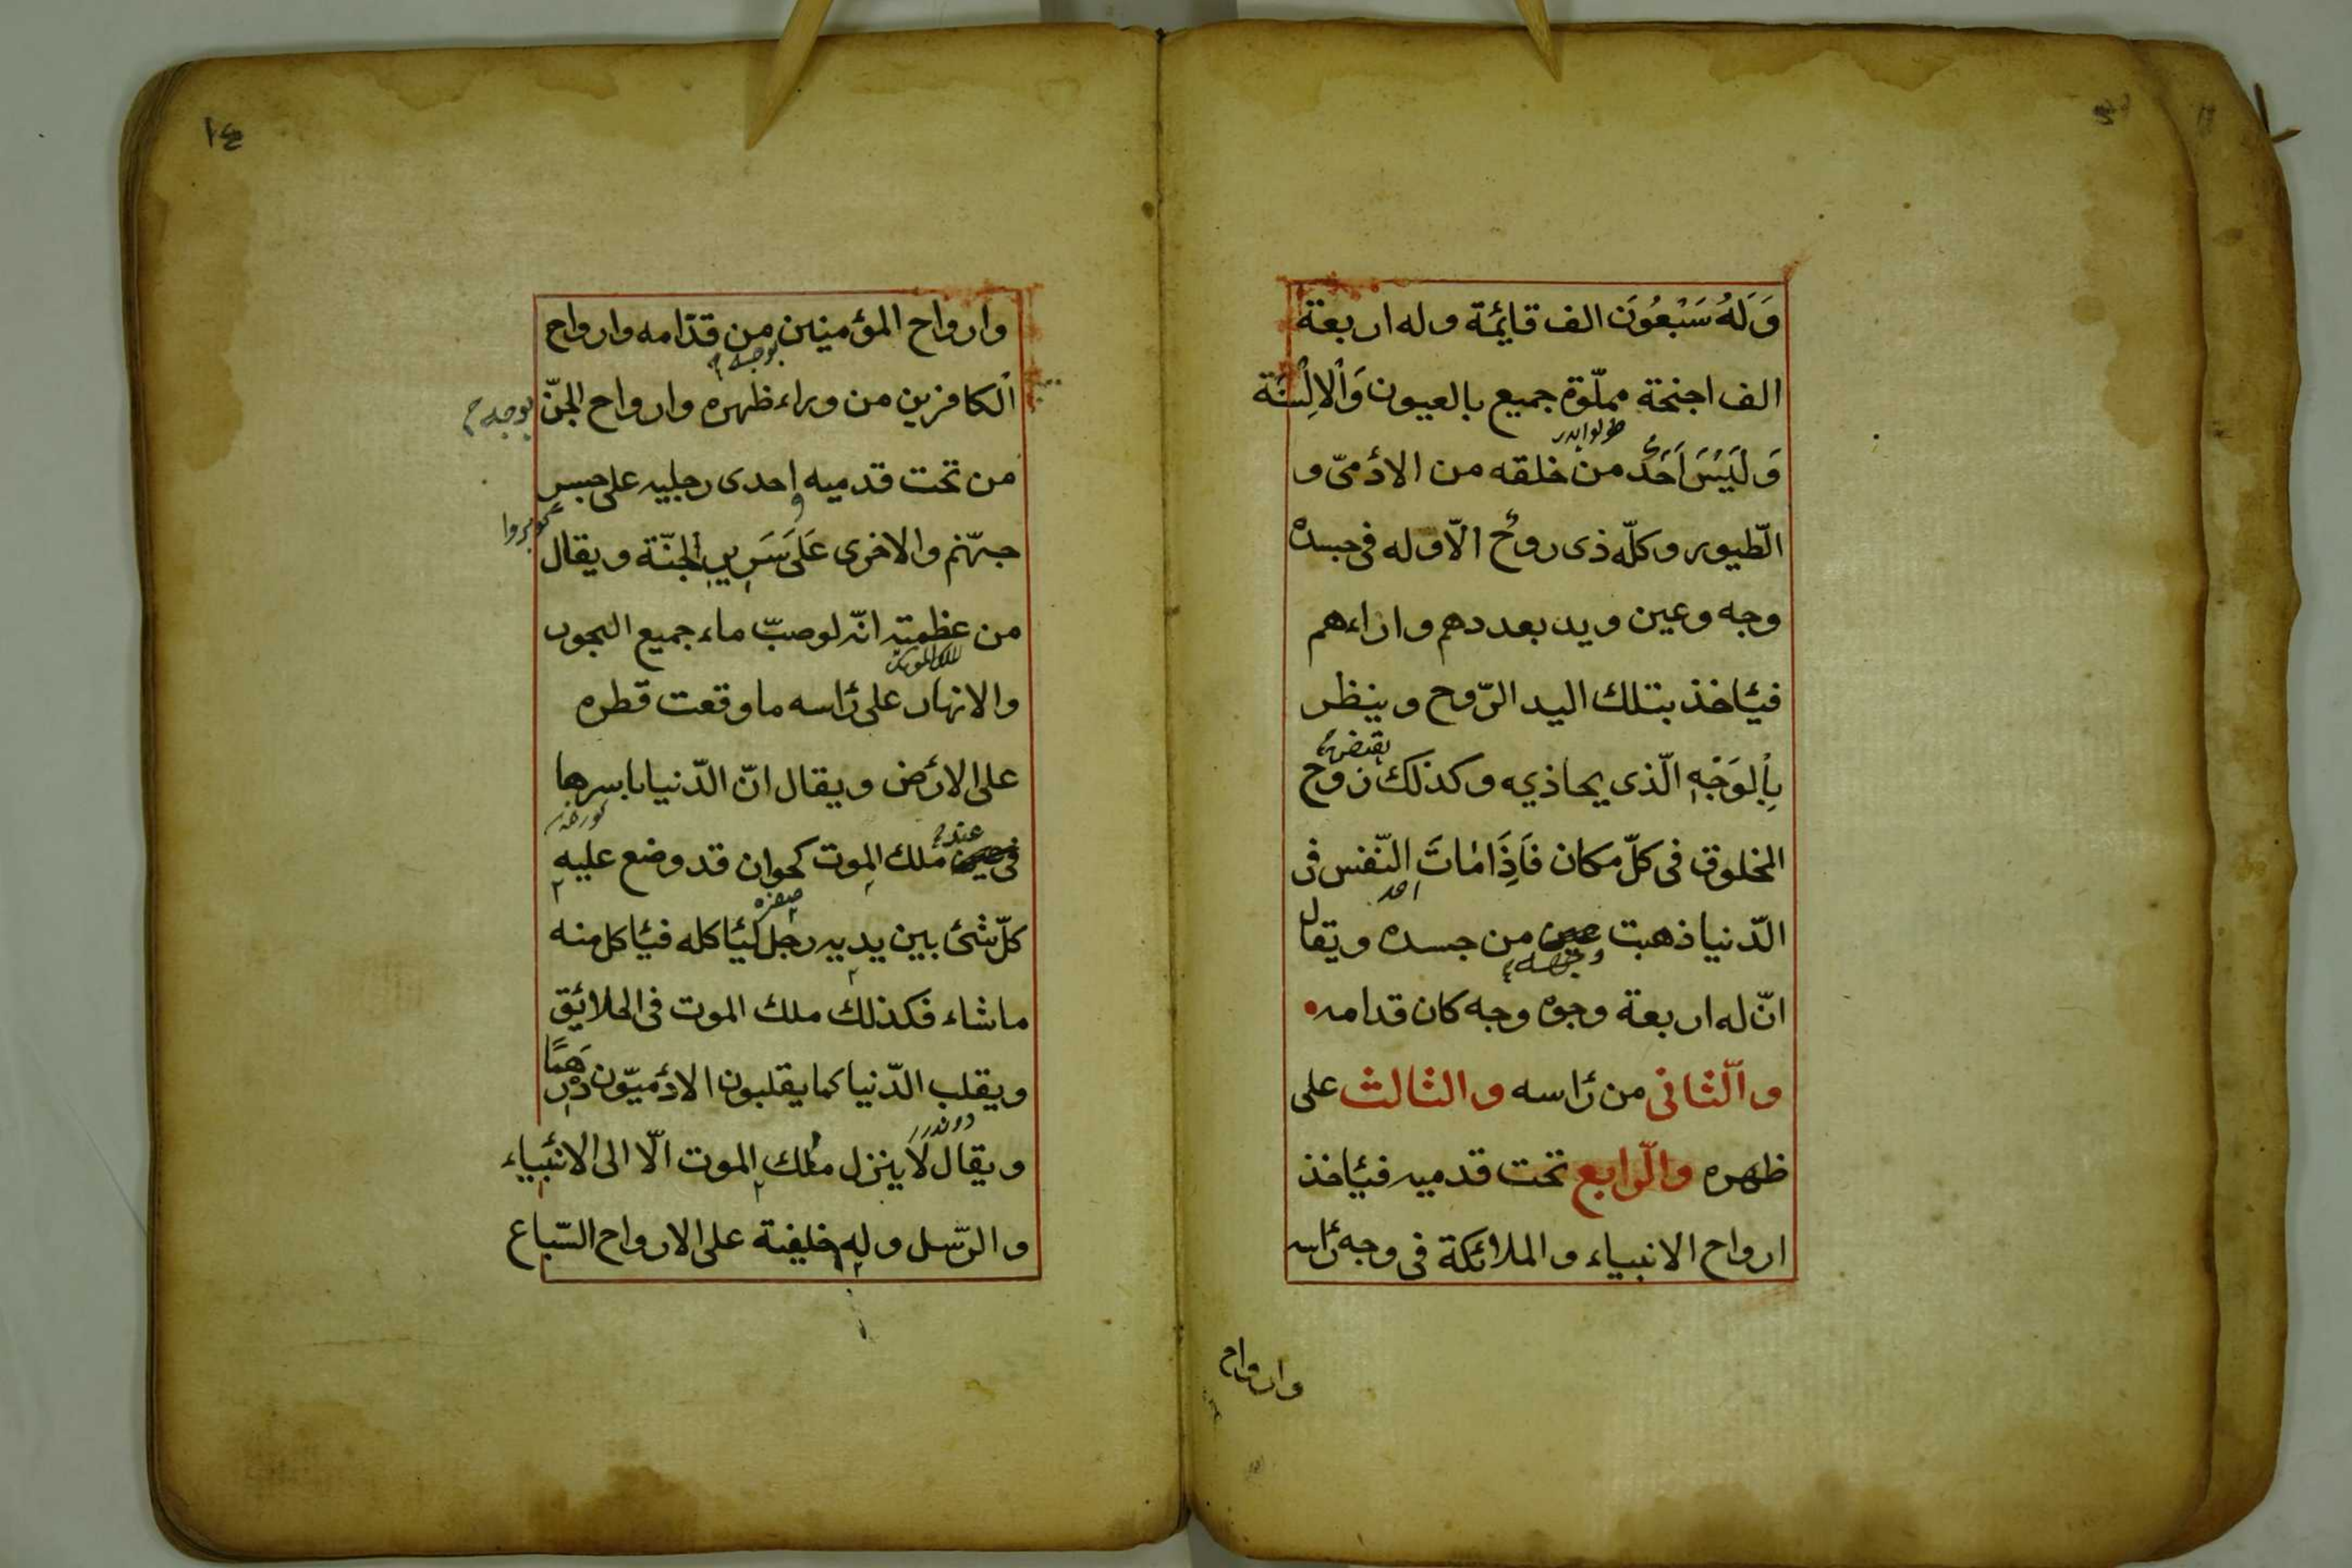 وَلَهُ سَبْعُوَنَ الف قايمٔة وله اربعة
الف اجنحة مملّوة جميع بالعيون وَاْلاِلْسَنَة
طولوايدر
وَلَيْسَ اَحَدٌ من خلقه من الادٔمىّ و
الطّيور وكلّه ذى روحٌ الّا وله فى جسده
وجه وعين ويد بعددهم وازاءهم
فئاخذ بتلك اليد الرّوح وينظر
يقبض
بِاْلوَجْهِ الّذى يحاذيه وكذلك روح
المخلوق فى كلّ مكان فَاِذَا مٰاتَ النّفس فى
احد
الدّنيا ذهبت عين من جسده ويقال
انّ له اربعة وجوه وجه كان قدامه
والّثانى من رٔاسه والثالث على
ظهره والّرابع تحت قدميه فئاخذ
ارواح الانبياء والملائكة فى وجه رٔاسه
وارواح
١٤
وارواح المؤمنين من قدّامه وارواح
بوجهه
اْلكافرين من وراء ظهره وارواح الجنّ
بوجه
من تحت قدميه واحدى رجليه على جسر
جهنّم والاخرى عَلَى سَرِيرِ الجنّة ويقال
من عظمته انّه لو صبّ ماء جميع البحور
ملك الموتك
والانهار على رٔاسه ما وقعت قطره
على الارٔض ويقال انّ الدّنيا باسرها
عند
فى عين ملك الموت كخوان قد وضع عليه
صفره
كلّ شئ بين يديه رجل لئاكله فئاكل منه
ما شاء فكذلك ملك الموت فى الخلائق
ويقلب الدّنيا كما يقلبون الادٔميّون دِرْهَمًا
دوندرر
ويقال لَا ينزل ملك الموت الّا الى الانبٔياء
والرّسل وله خليفة على الارواح السّباع